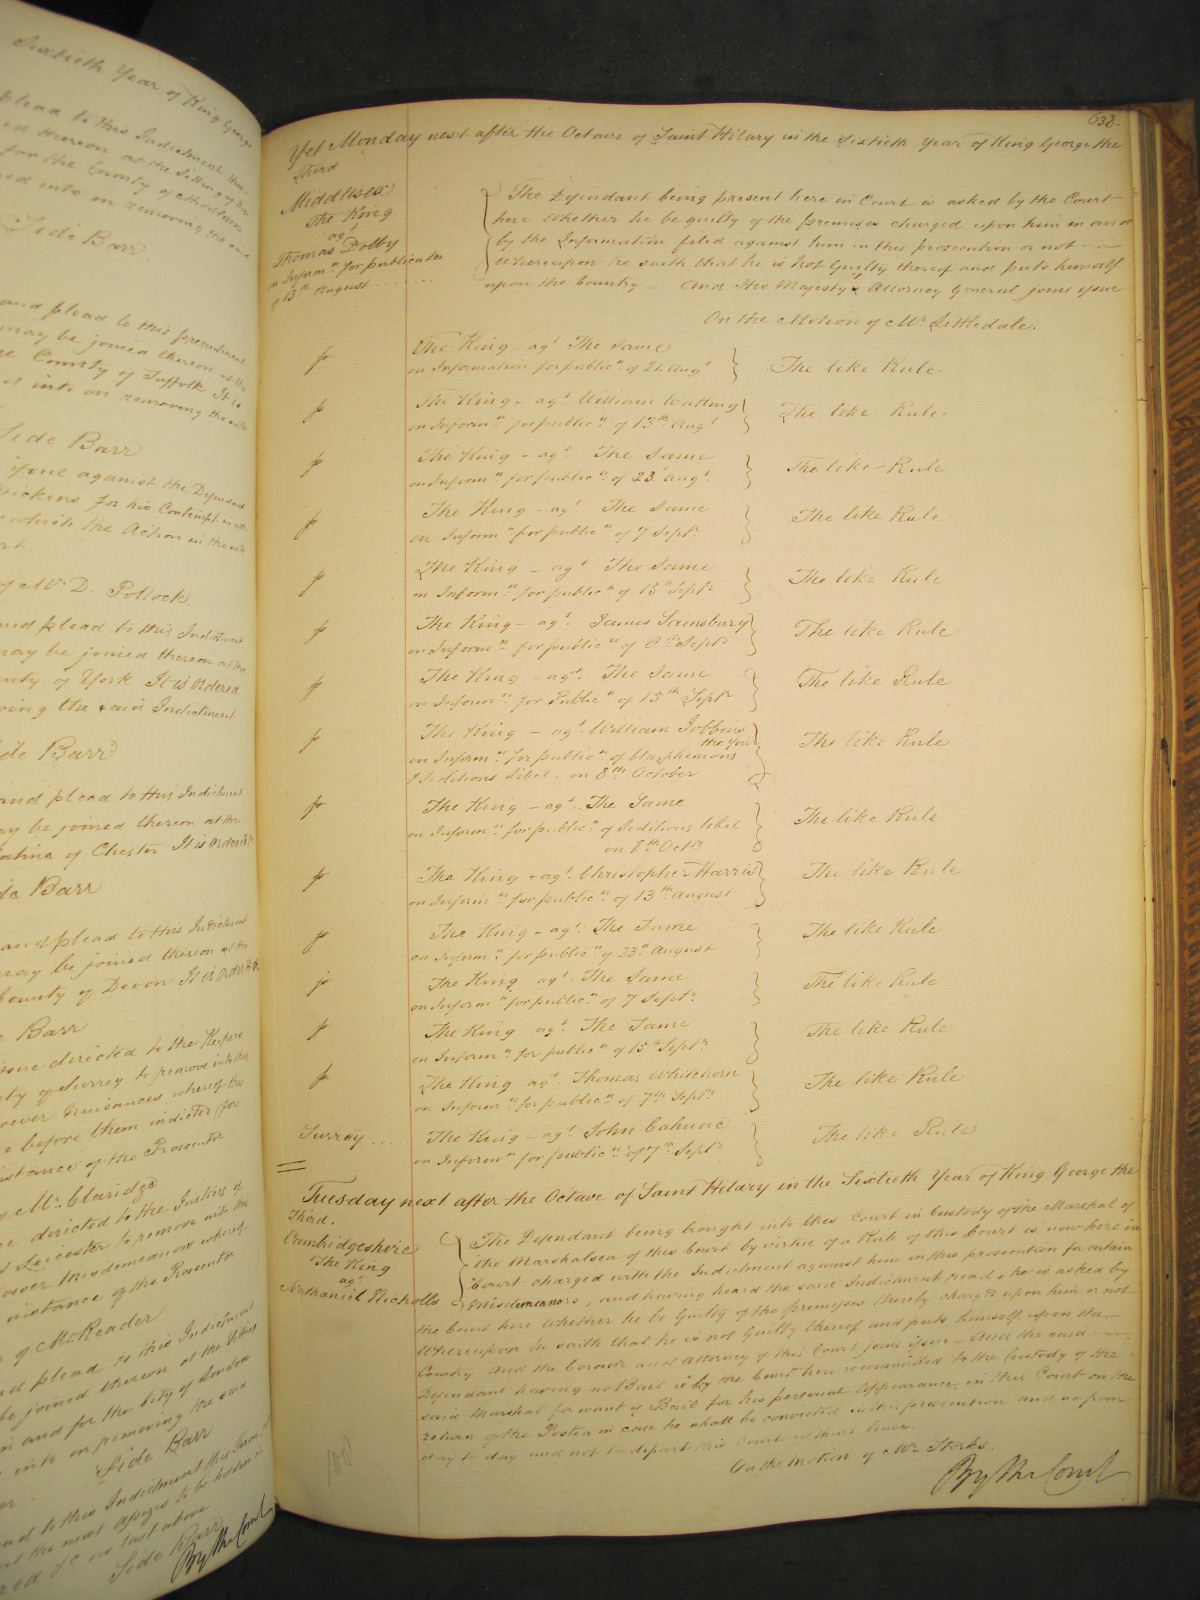 Sixtieth Year of King George
plead to this Indictment this
ed thereon at the Sitting of
for the County of Middlesex
ed into on removing the said
Side Barr
and plead to this presentment
may be joined thereon at the
County of Suffolk It is
d into on removing the said
Side Barr
issue against the Defendant
ickens for his Contempt
which the Action in the
of Mr. D. Pollock.
and plead to this Indictment
may be joined thereon at the
nty of York It is Ordered
oving the said Indictment
ide Barr
and plead to this Indictment
ay be joined thereon at the
of Chester It is Ordered
ide Barr
and plead to this Indictment
may be joined thereon at the
County of Devon It is Ordered
Barr
issue directed to the Keepers
ty of Surrey to remove into this
Nuisances whereof the
before them indicted for
stance of the Prosecutor
Mr. Claridge
directed to the Justices of
Leicester to remove into this
over Misdemeanors whereof
instance of the Prosecutor
of Mr. Reader
nd plead to this Indictment
be joined thereon at the Sittings
in and for the City of London
into on removing the said
Side Barr
ad to this Indictment this Term
the next Assizes to be holden
red &c as last above
Side Barr
By the Court
638.
Yet Monday next after the Octave of Saint Hilary in the Sixtieth Year of King George the
Third
Middlesex
The King
agt
Thomas Dolby
on Informn for publicatn
of 13th August
The Defendant being present here in Court is asked by the Court
here Whether he be guilty of the premises charged upon him in and
by the Information filed against him in this prosecution or not —
Whereupon he saith that he is Not Guilty thereof and puts himself
upon the Country — And His Majesty's Attorney General joins issue
On the Motion of Mr. Littledale.
The King – agt. The Same
on Information for publicn. of 21. Augt
The like Rule
The King – agt. William Watling
on Informn. for publicn. of 13th Augt
The like Rule.
The King – agt. The Same
on Informn. for publicn. of 23 Augt.
The like Rule
The King – agt The Same
on Informn for publicn of 7 Septr
The like Rule
The King – agt The Same
on Informn. for publicn of 15th Septr
The like Rule
The King – agt. James Sainsbury
on Informn. for publicn of 8th Septr
The like Rule
The King – agt. The Same
on Informn. for Publicn of 15th Septr
The like Rule
The King – agt. William Jobbins
the Younr
on Informn. for publicn of blasphemous
& Seditious Libel – on 8th October
The like Rule
The King – agt. The Same
on Informn. for publicn. of Seditious libel
on 8th Octr
The like Rule
The King – agt. Christopher Harris
on Informn. for publicn. of 13th August
The like Rule
The King – agt. The Same
on Informn. for publicn. of 23d August
The like Rule
The King agt. The Same
on Informn for publicn. of 7 Septr.
The like Rule
The King agt. The Same
on Informn for publicn of 15th Septr.
The like Rule
The King agt. Thomas Whitehorn
on Informn. for publicn. of 7th Septr
The like Rule
Surrey ....
The King – agt. John Cahuac
on Informn for publicn of 7th Septr
The like Rule
Tuesday next after the Octave of Saint Hilary in the Sixtieth Year of King George the
Third.
Cambridgeshire
The King
agt
Nathaniel Nicholls
The Defendant being brought into this Court in Custody of the Marshal of
the Marshalsea of this Court by virtue of a Rule of this Court is now here in
Court charged with the Indictment against him in this prosecution for certain
Misdemeanors, and having heard the said Indictment read, he is asked by
the Court here Whether he be Guilty of the premises thereby charged upon him or not
Whereupon he saith that he is not Guilty thereof and puts himself upon the
Country And the Coroner and Attorney of this Court joins issue – And the said
Defendant having no Bail is by the Court here recommitted to the Custody of the
said Marshal for want of Bail for his personal Appearance in this Court on the
return of the Postea in case he shall be convicted in this prosecution and so from
day to day and not to depart this Court without leave.
On the motion of Mr. Storks.
By the Court